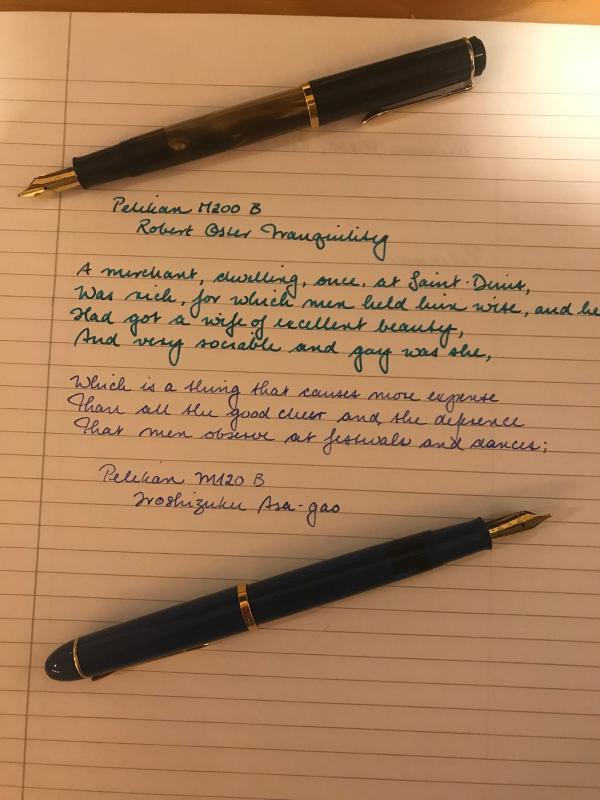 Pelikan M200 B
Robert Oster Tranquility
A merchant, dwelling, once, at Saint-Denis,
Was rich, for which men held him wise, and he
Had got a wife of excellent beauty,
And very sociable and gay was she,
Which is a thing that causes more expense
Than all the good cheer and the deference
That men observe at festivals and dances;
Pelikan M120 B
Iroshizuku Asa-gao